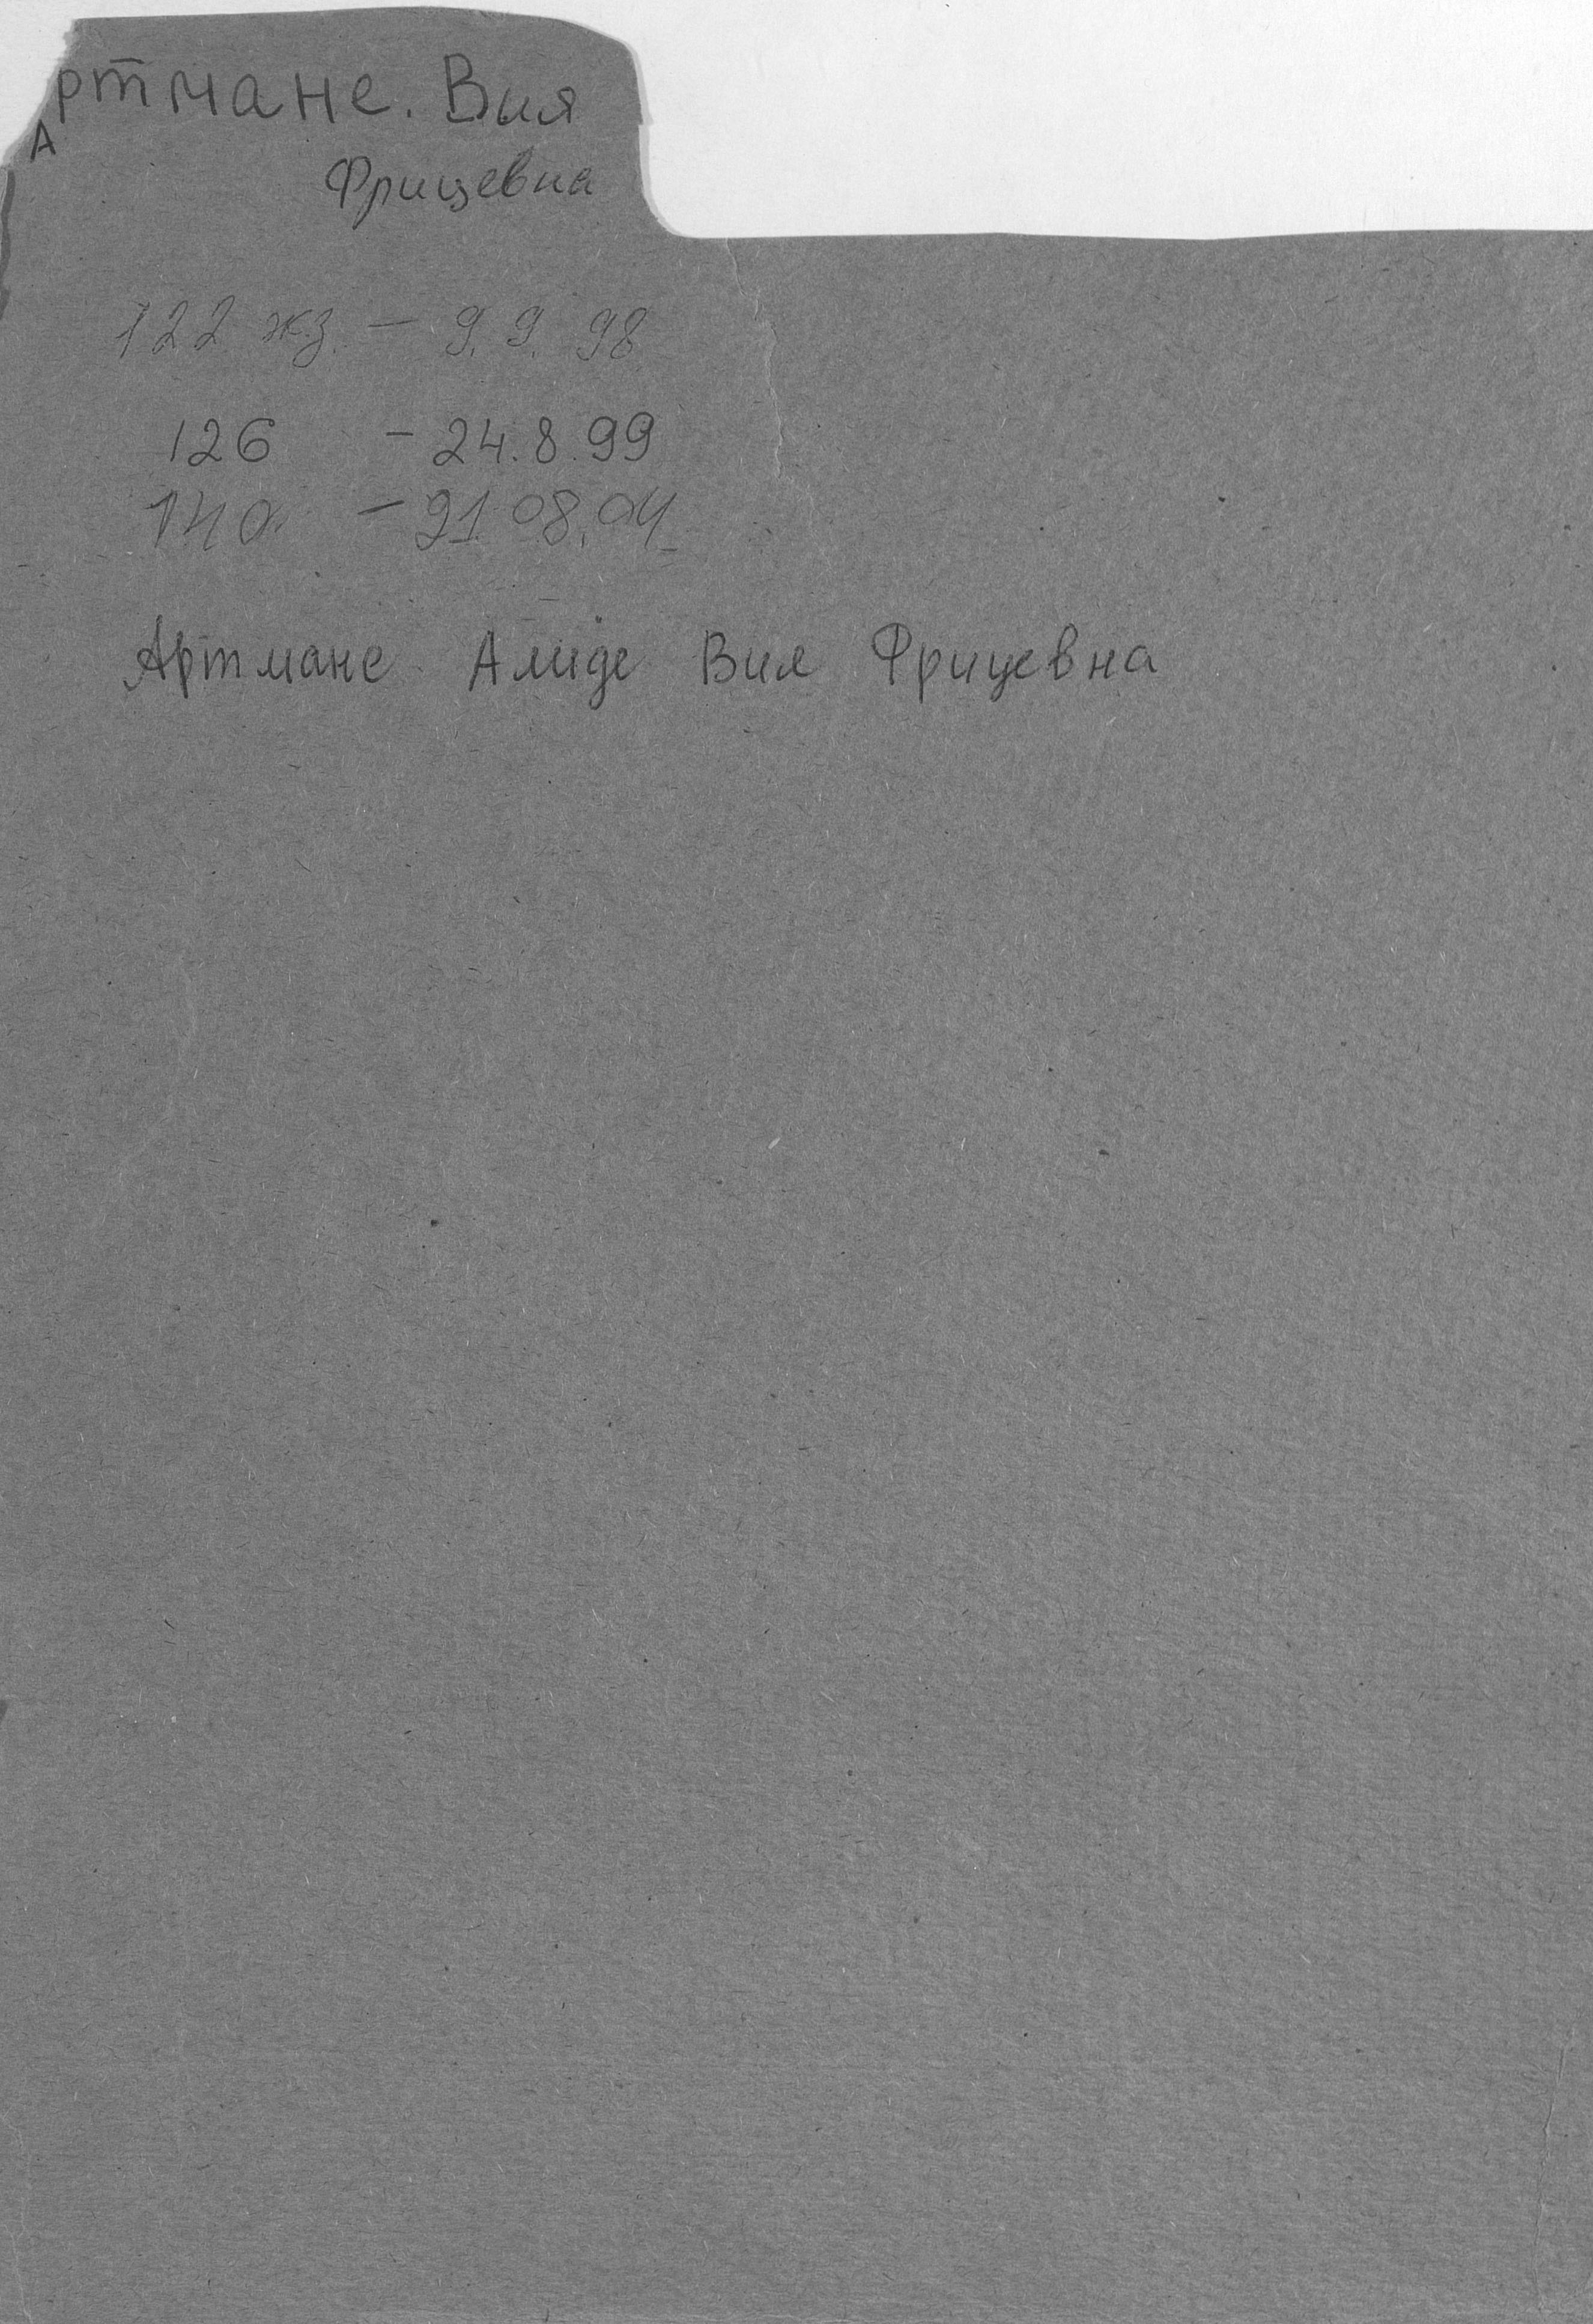 Артмане. Вия
Фрицевна
122 жз. – 9.9.98
126 – 24.8.99
140 – 21.08.04
Артмане Алиде Вия Фрицевна